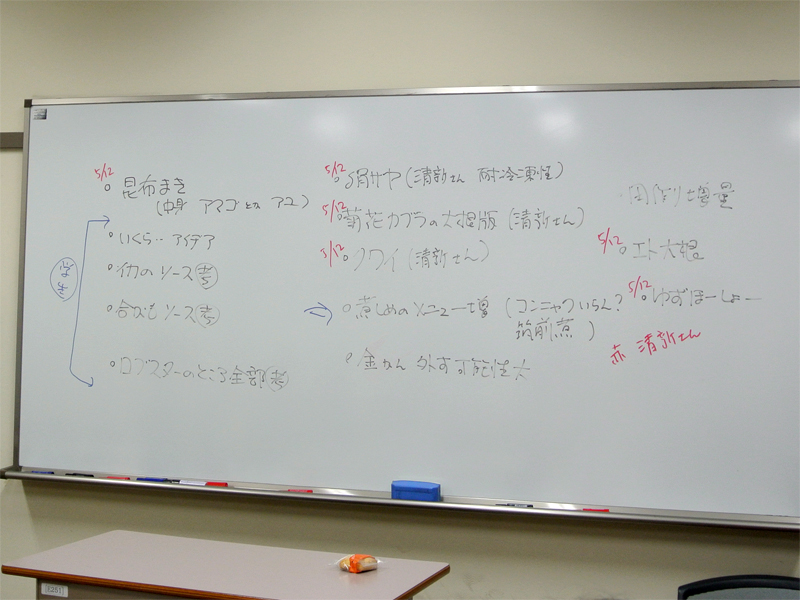 5/12
昆布まき
(中身 アマゴとか アユ)
いくら‥アイデア
イカのソース考
合ガモソース考
ロブスターのところ全部考
5/12
絹サヤ(清新さん 耐冷凍性)
5/12
菊花カブラの大根版(清新さん)
5/12
クワイ(清新さん)
煮しめのソニュー増(コンニャクいらん?
筑前煮)
金かん 外す可能性大
増量
5/12
エト大根
5/12
ゆずほーしょー
赤 清新さん
E251